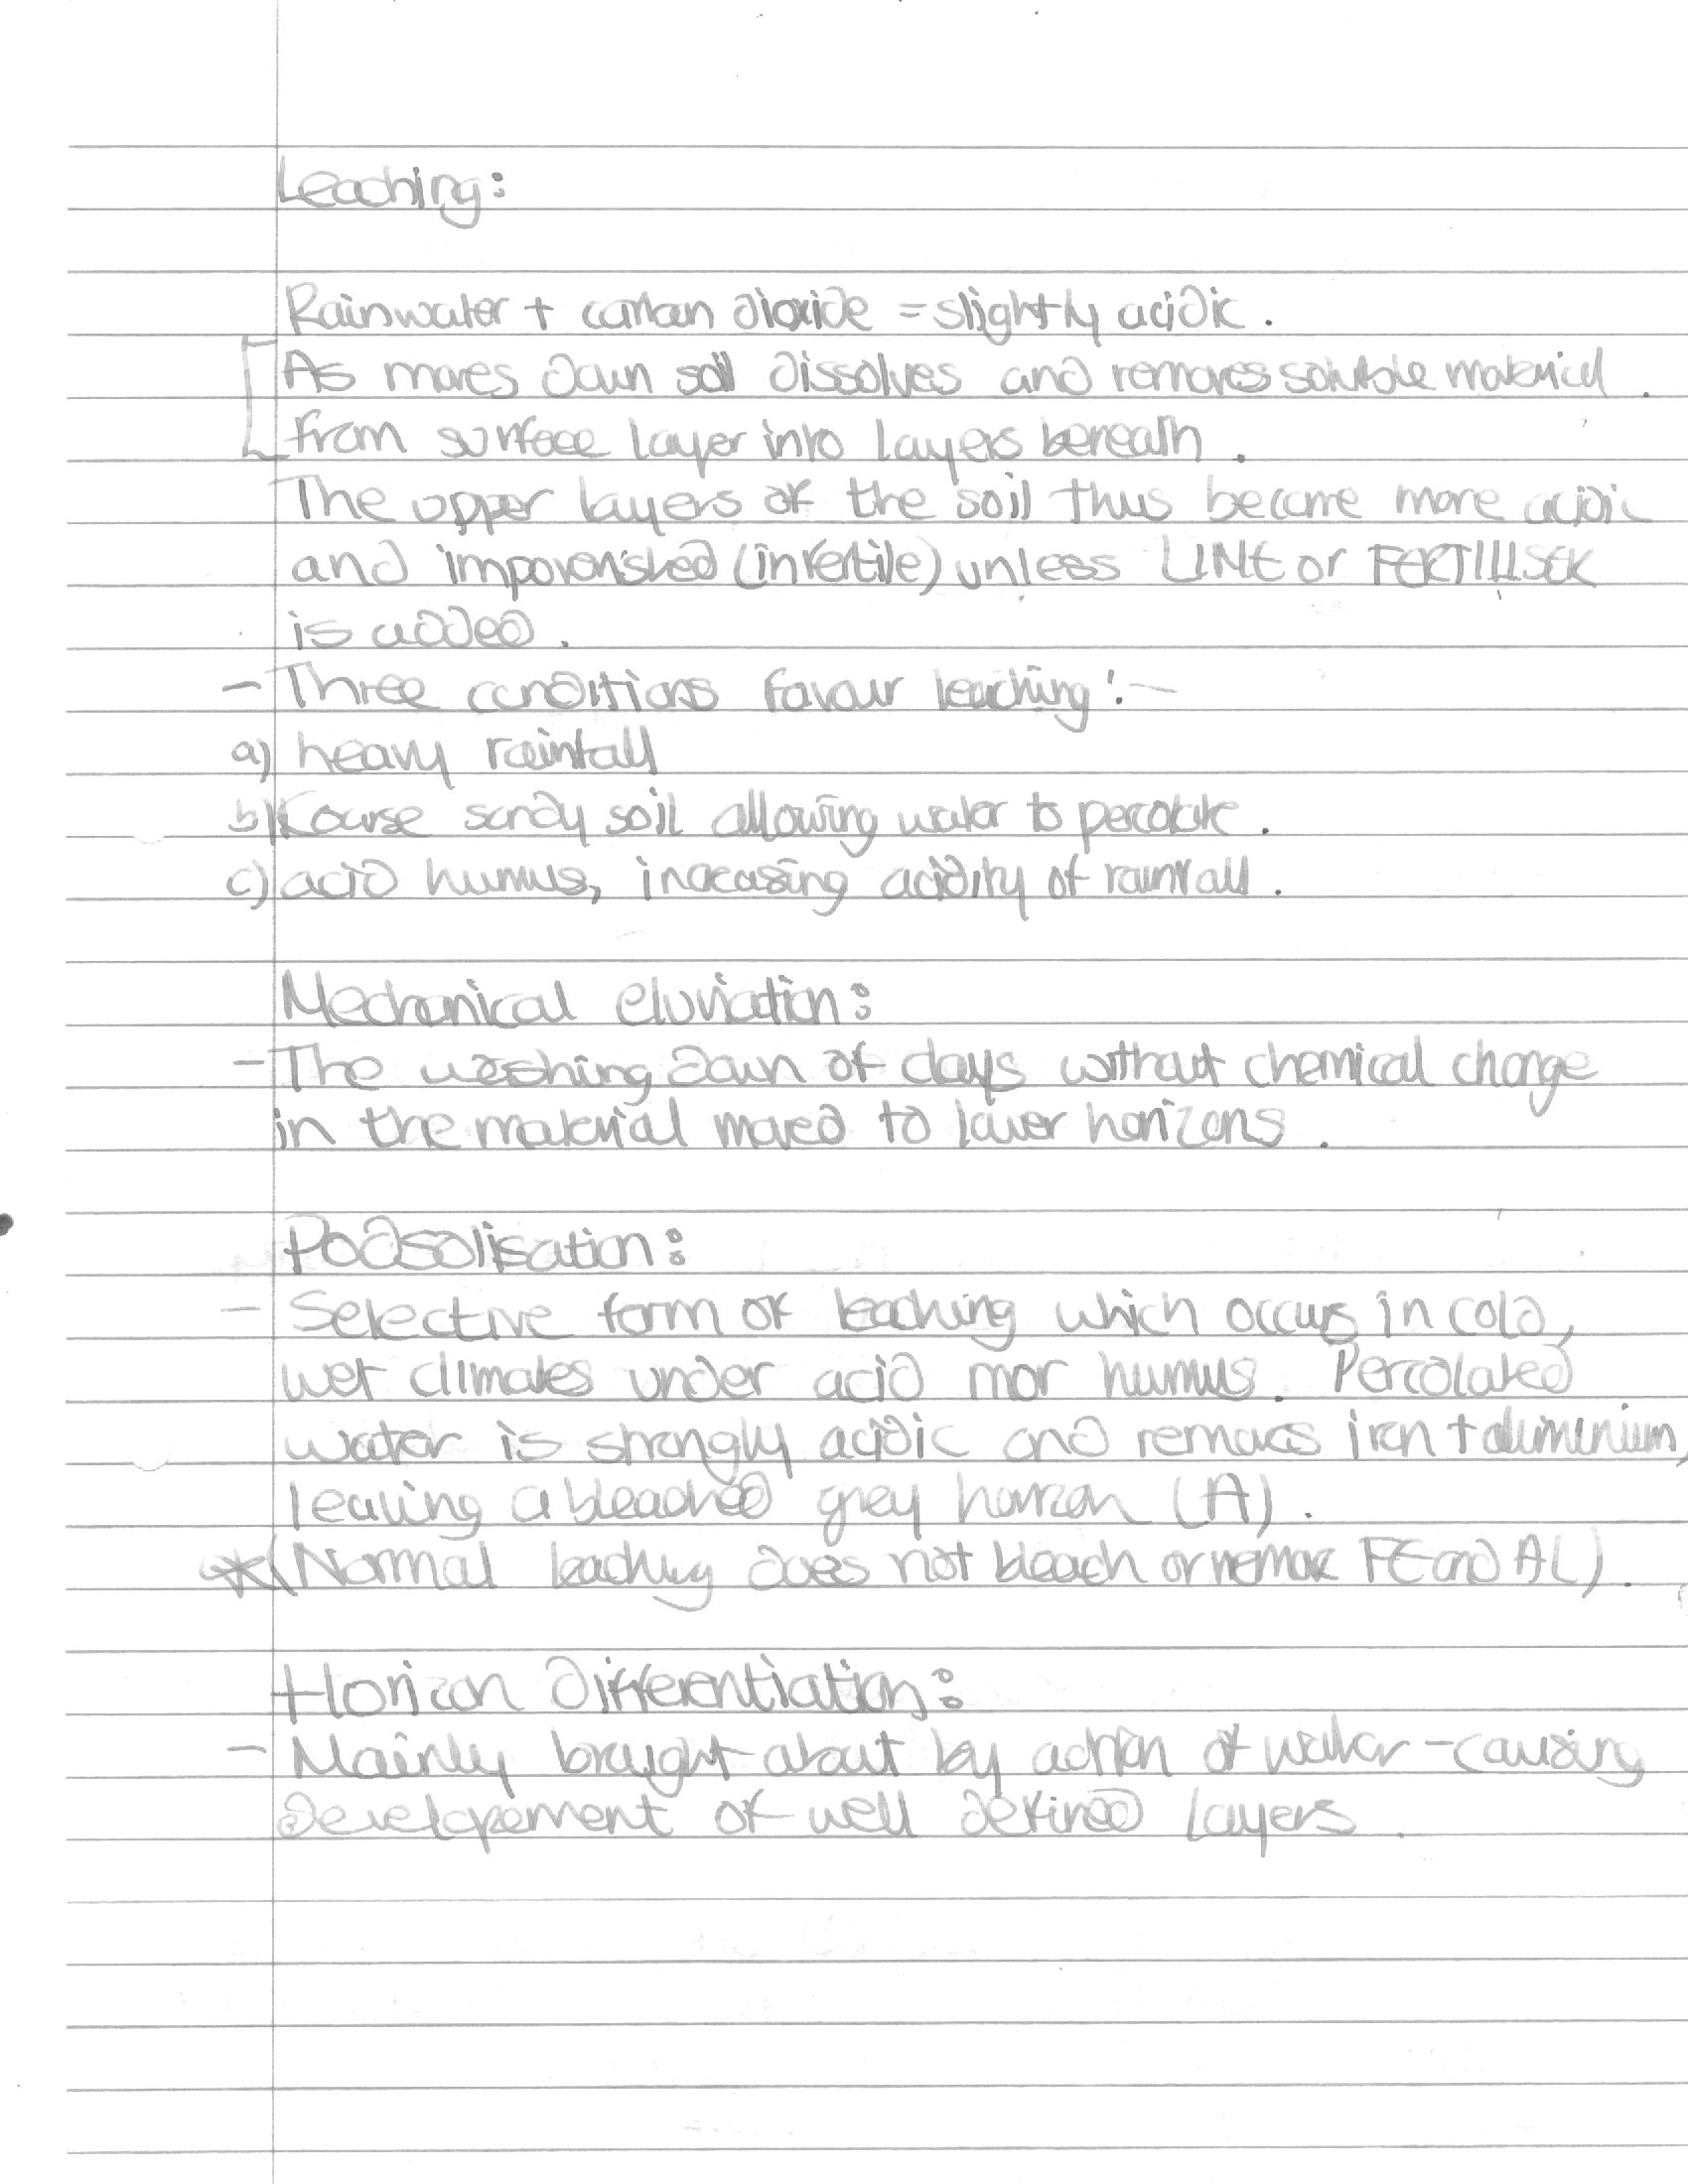 Leaching:
Rainwater + carbon dioxide = slightly acidic.
As moves down soil dissolves and removes soluble material
from surface layer into layers beneath.
The upper layers of the soil thus become more acidic
and impoverished (infertile) unless LIME or FERTILISER
is added.
- Three conditions favour leaching:-
a) heavy rainfall
b) Course sandy soil allowing water to percolate.
c) acid humus, increasing acidity of rainfall.
Mechanical eluviation:
- The washing down of clays without chemical change
in the material moved to lower horizons.
Podsolisation:
- Selective form of leaching which occurs in cold,
wet climates under acid mor humus. Percolated
water is strongly acidic and removes iron + aluminium,
leaving a bleached grey horizon (A).
* (Normal leaching does not bleach or remove FE and AL).
Horizon Differentiation:
- Mainly brought about by action of water - causing
developement of well defined layers.